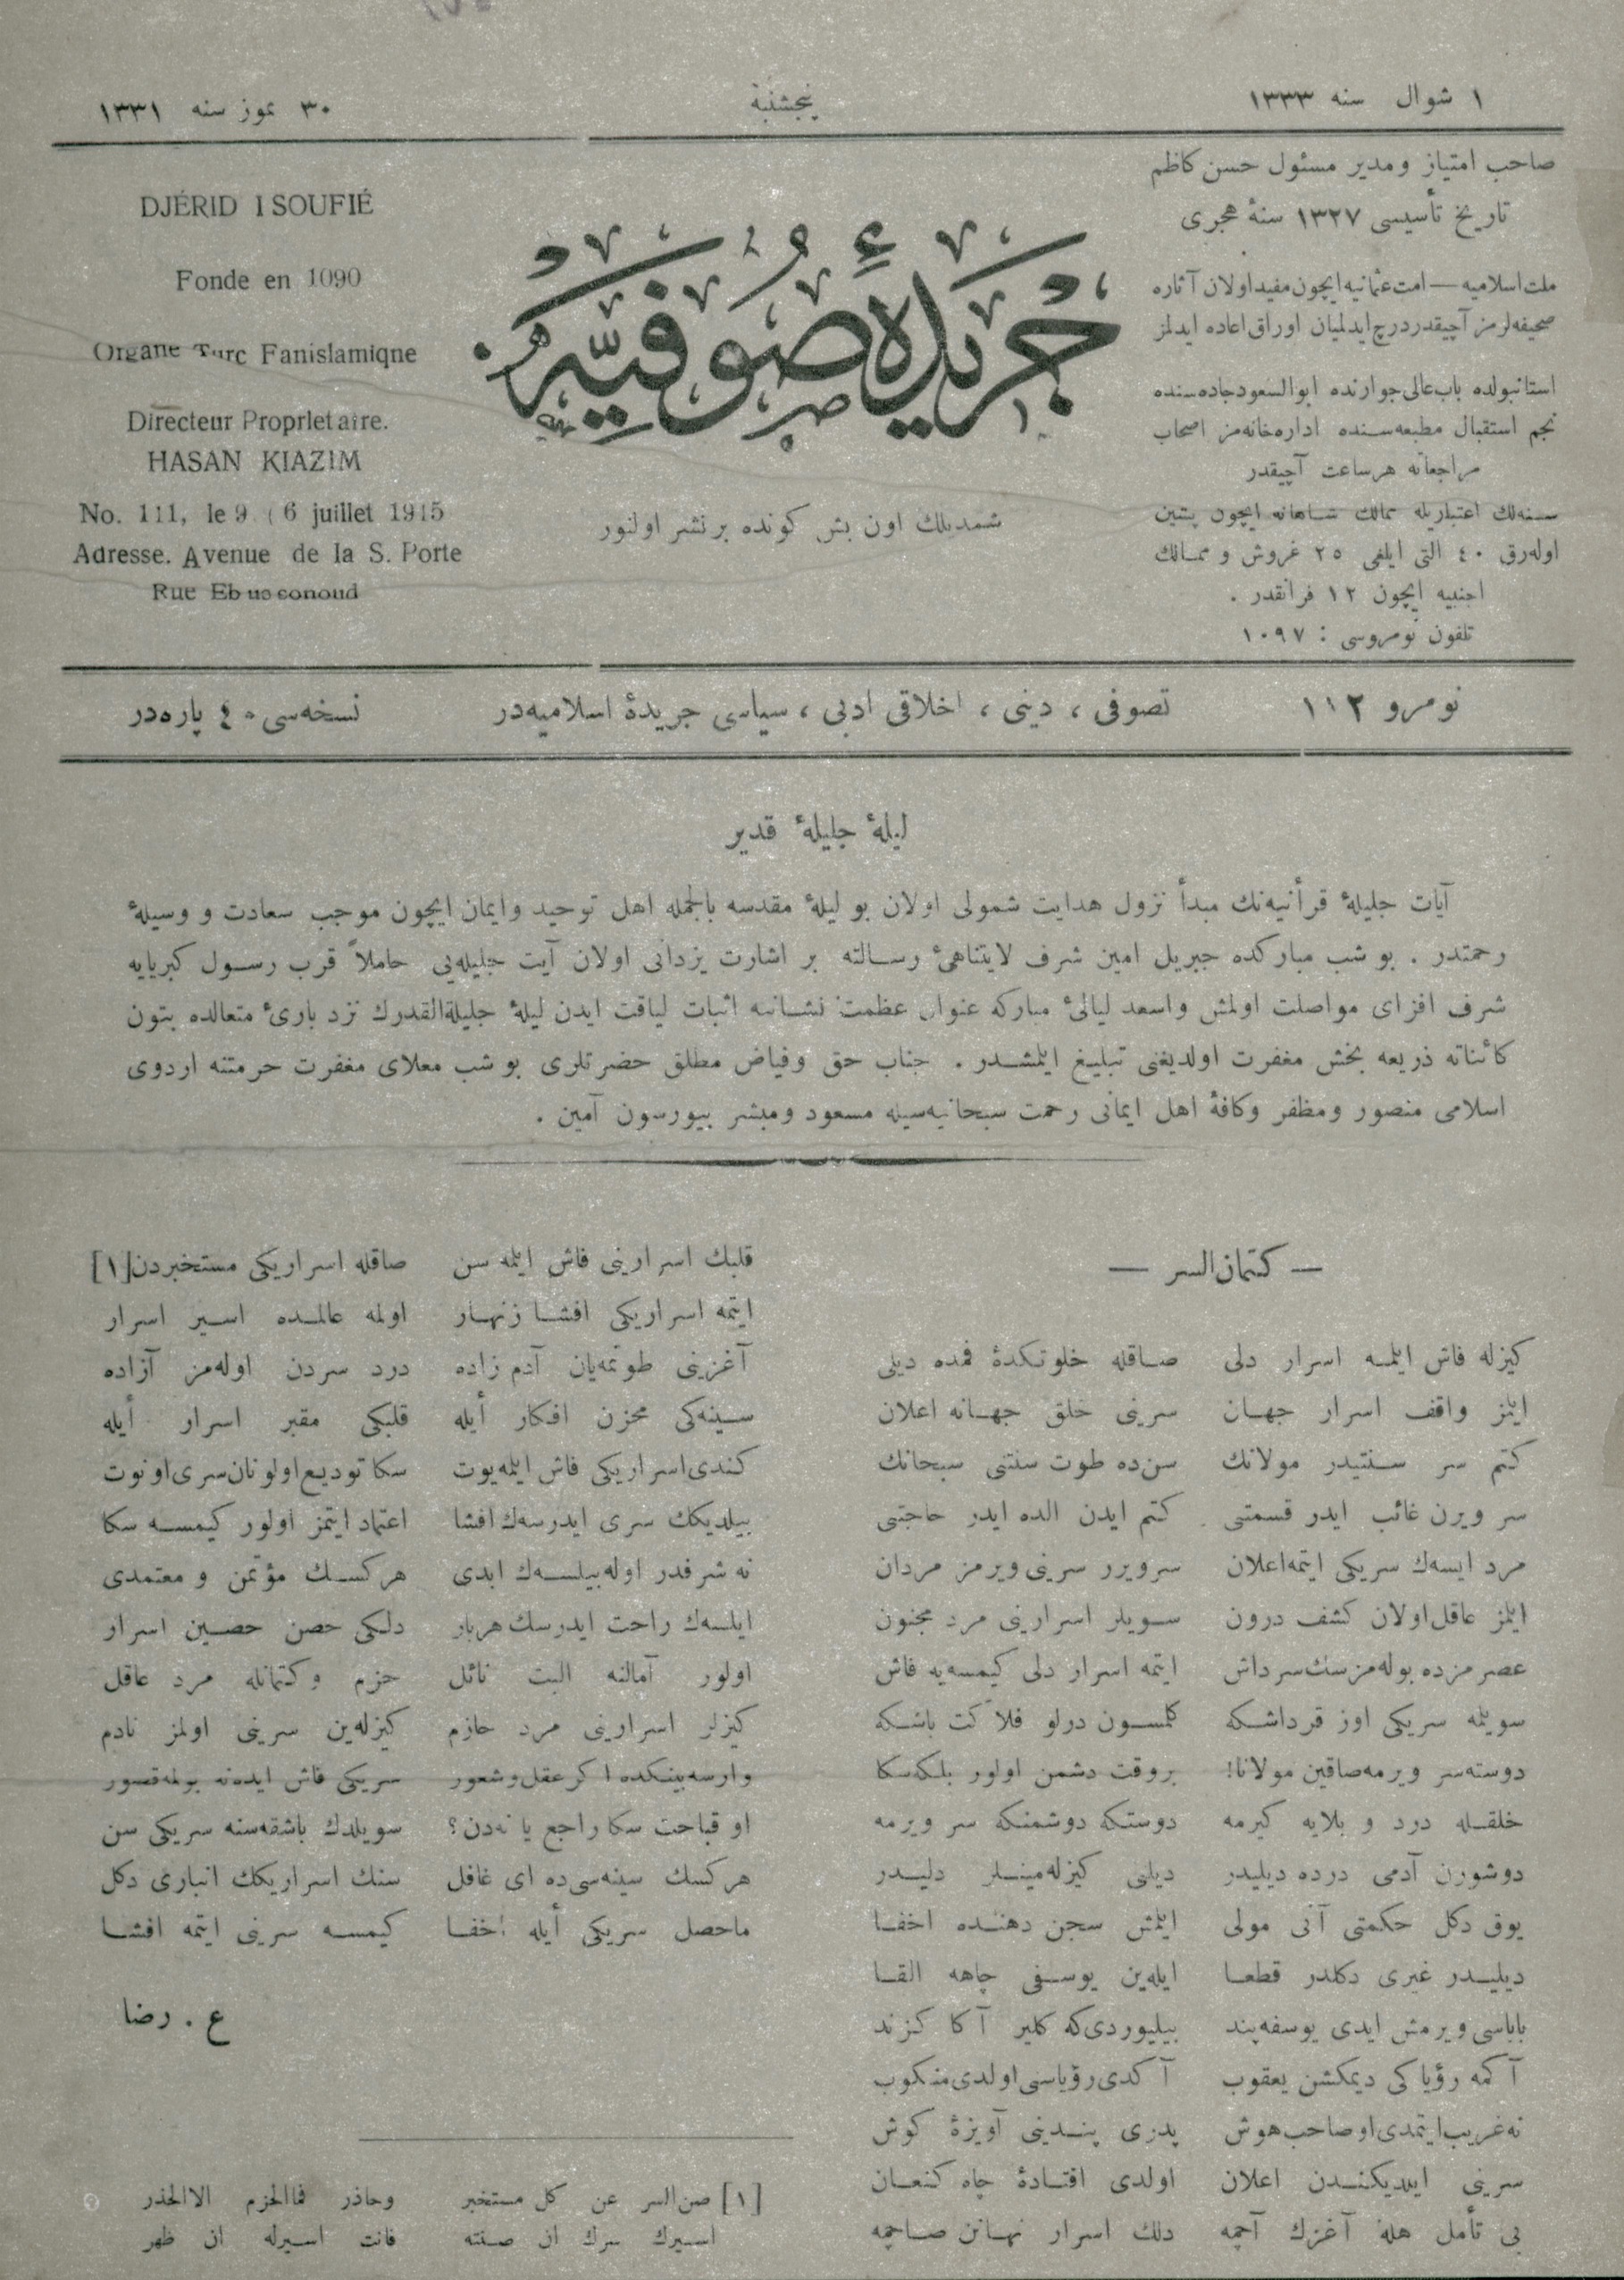 ١ شوال سنه ١٣٣٣
پنجشنبة
٣٠ تموز سنه ١٣٣١
صاحب امتیاز ومدیر مسئول حسن کاظم
تاریخ تأسیسی ١٣٢٧ سنۀ هجری
ملت اسلامیه — امت عثمانیه ایچون مفید اولان آثاره
صحیفه‌لرمز آچیقدر درج ایدلمیان اوراق اعاده ایدلمز
استانبولده باب عالی جوارنده ابوالسعود جاده‌سنده
نجم استقبال مطبعه‌سنده اداره‌خانه‌مز اصحاب
مراجعاته هر ساعت آچیقدر
سنه‌لك اعتباریله ممالك شاهانه ایچون پشین
اوله‌رق ٤٠ التی ایلغی ٢٥ غروش و ممالك
اجنبیه ایچون ١٢ فرانقدر .
تلفون نومروسی : ١٠٩٧
جریدۀ صوفیه
شمدیلك اون بش کونده بر نشر اولنور
DJÉRID I SOUFIÉ
Fonde en 1090
Organe Turc Fanislamiqne
Directeur Proprletaire.
HASAN KIAZIM
No. 111, le 9 ( 6 juillet 1915
Adresse. Avenue de la S. Porte
Rue Eb us sonoud
نومرو ١١٢
تصوفی ، دینی ، اخلاقی ادبی ، سیاسی جریدۀ اسلامیه‌در
نسخه‌سی ٤٠ پاره‌در
لیلۀ جلیلۀ قدیر
آیات جلیلۀ قرأنیه‌نك مبدأ نزول هدایت شمولی اولان بو لیلۀ مقدسه بالجمله اهل توحید وایمان ایچون موجب سعادت و وسیلۀ
رحمتدر . بو شب مبارکده جبریل امین شرف لایتناهیٔ رسالته بر اشارت یزدانی اولان آیت جلیله‌یی حاملاً قرب رسول کبریایه
شرف افزای مواصلت اولمش واسعد لیالیٔ مبارکه عنوان عظمت نشانه اثبات لیاقت ایدن لیلۀ جلیلةالقدرك نزد باریٔ متعالده بتون
کائناته ذریعه بخش مغفرت اولدیغنی تبلیغ ایلمشدر . جناب حق وفیاض مطلق حضرتلری بو شب معلای مغفرت حرمتنه اردوی
اسلامی منصور ومظفر وکافۀ اهل ایمانی رحمت سبحانیه‌سیله مسعود ومبشر بیورسون آمین .
— کتمان السر —
کیزله فاش ایلمه اسرار دلی صاقله خلوتکدۀ فمده دیلی
ایلمز واقف اسرار جهان سرینی خلق جهانه اعلان
کتم سر سنتیدر مولانك سن‌ده طوت سنتنی سبحانك
سر ویرن غائب ایدر قسمتنی کتم ایدن الده ایدر حاجتنی
مرد ایسه‌ك سریکی ایتمه اعلان سرویرر سرینی ویرمز مردان
ایلمز عاقل اولان کشف درون سویلر اسرارینی مرد مجنون
عصرمزده بوله‌مزسك سرداش ایتمه اسرار دلی کیمسه‌یه فاش
سویلمه سریکی اوز قرداشکه کلمسون درلو فلاکت باشکه
دوسته سر ویرمه صاقین مولانا! بر وقت دشمن اولور بلکه سکا
خلقله درد و بلایه کیرمه دوستکه دوشمنکه سر ویرمه
دوشورن آدمی درده دیلیدر دیلنی کیزله‌مینلر دلیدر
یوق دکل حکمتی آنی مولی ایلمش سجن دهنده اخفا
دیلیدر غیری دکلدر قطعا ایله‌ین یوسفی چاهه القا
باباسی ویرمش ایدی یوسفه پند بیلیوردی‌که کلیر آکا کزند
آکمه رؤیاکی دیمکشن یعقوب آکدی رؤیاسی اولدی منکوب
نه غریب ایتمدی او صاحب هوش پدری پندینی آویزۀ کوش
سرینی ایلدیکندن اعلان اولدی افتادۀ چاه کنعان
بی تأمل هله آغزك آچمه دلك اسرار نهانن صاچمه
قلبك اسرارینی فاش ایلمه سن صاقله اسراریکی مستخبردن [١]
ایتمه اسراریکی افشا زنهار اولمه عالمده اسیر اسرار
آغزینی طوتمه‌یان آدم زاده درد سردن اوله‌مز آزاده
سینه‌کی مخزن افکار أیله قلبکی مقبر اسرار أیله
کندی اسراریکی فاش ایلمه یوت سکا تودیع اولونان سری اونوت
بیلدیکك سری ایدرسه‌ك افشا اعتماد ایتمز اولور کیمسه سکا
نه شرفدر اوله بیلسه‌ك ابدی هرکسك مؤتمن و معتمدی
ایلسه‌ك راحت ایدرسك هربار دلکی حصن حصین اسرار
اولور آمالنه البت نائل حزم وکتمانله مرد عاقل
کیزلر اسرارینی مرد حازم کیزله‌ین سرینی اولمز نادم
وارسه بینکده اکر عقل وشعور سریکی فاش ایده‌نه بولمه قصور
او قباحت سکا راجع یا نه‌دن؟ سویلدك باشقه‌سنه سریکی سن
هرکسك سینه‌سی‌ده ای غافل سنك اسراریکك انباری دکل
ماحصل سریکی أیله اخفا کیمسه سرینی ایتمه افشا
ع . رضا
[١] صن السر عن کل مستخبر وحاذر فماالحزم الاالحذر
اسیرك سرك ان صنته فانت اسیرله ان ظهر